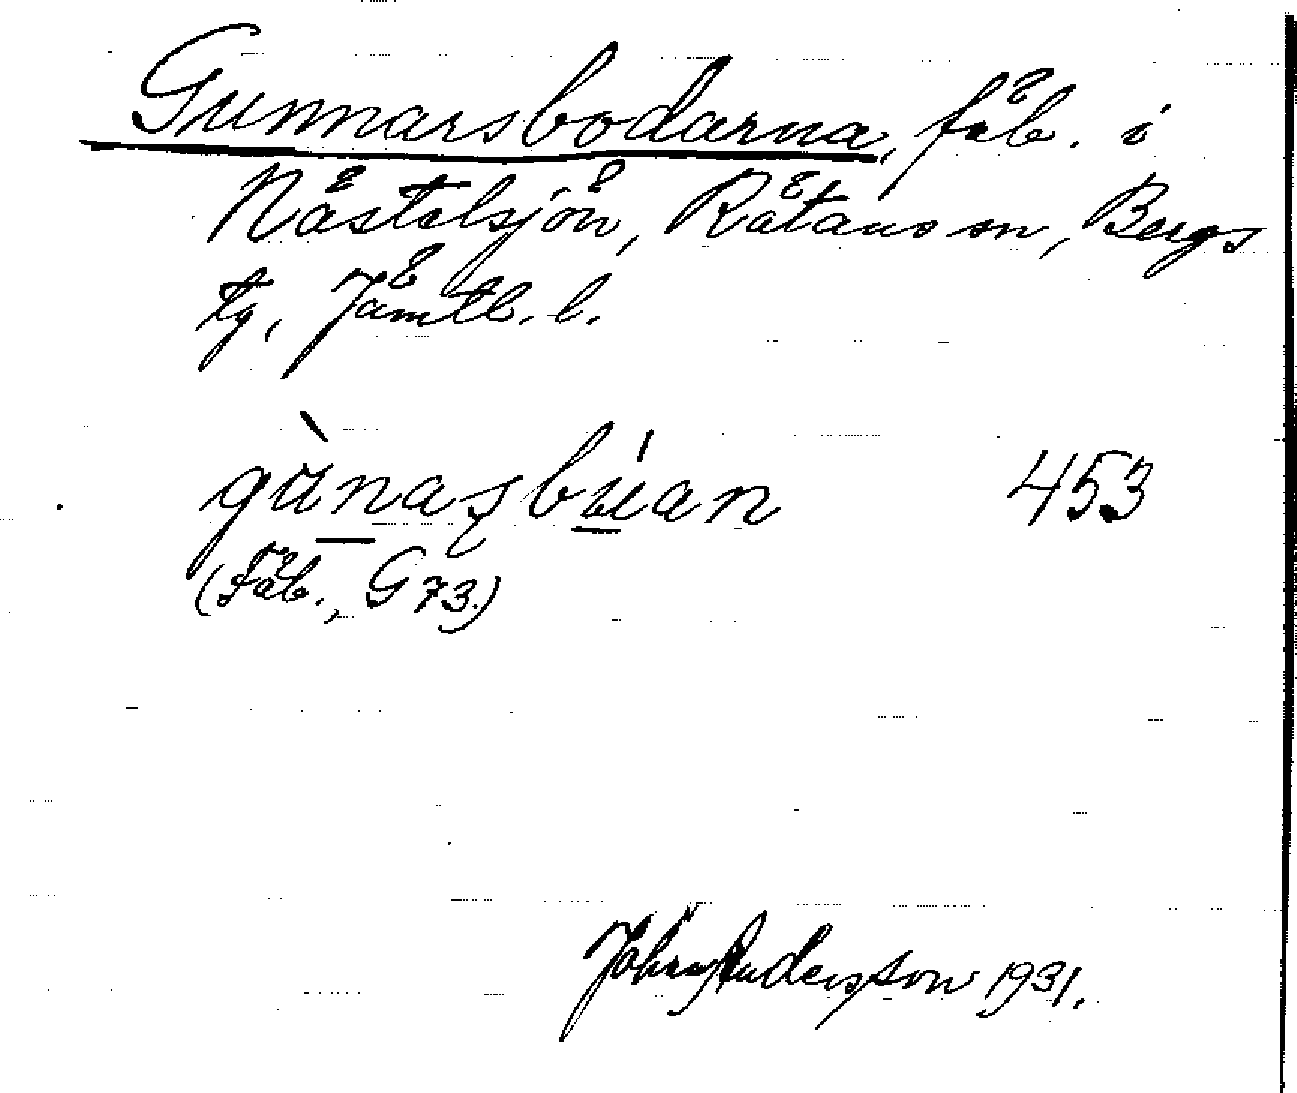 Gunnarsbodarna, fäb. i
Nästelsjön, Rätans sn, Bergs
tg, Jämtl. l.
gùnasbúan 453
(Fäb., G 73.)
Andersson 1931.